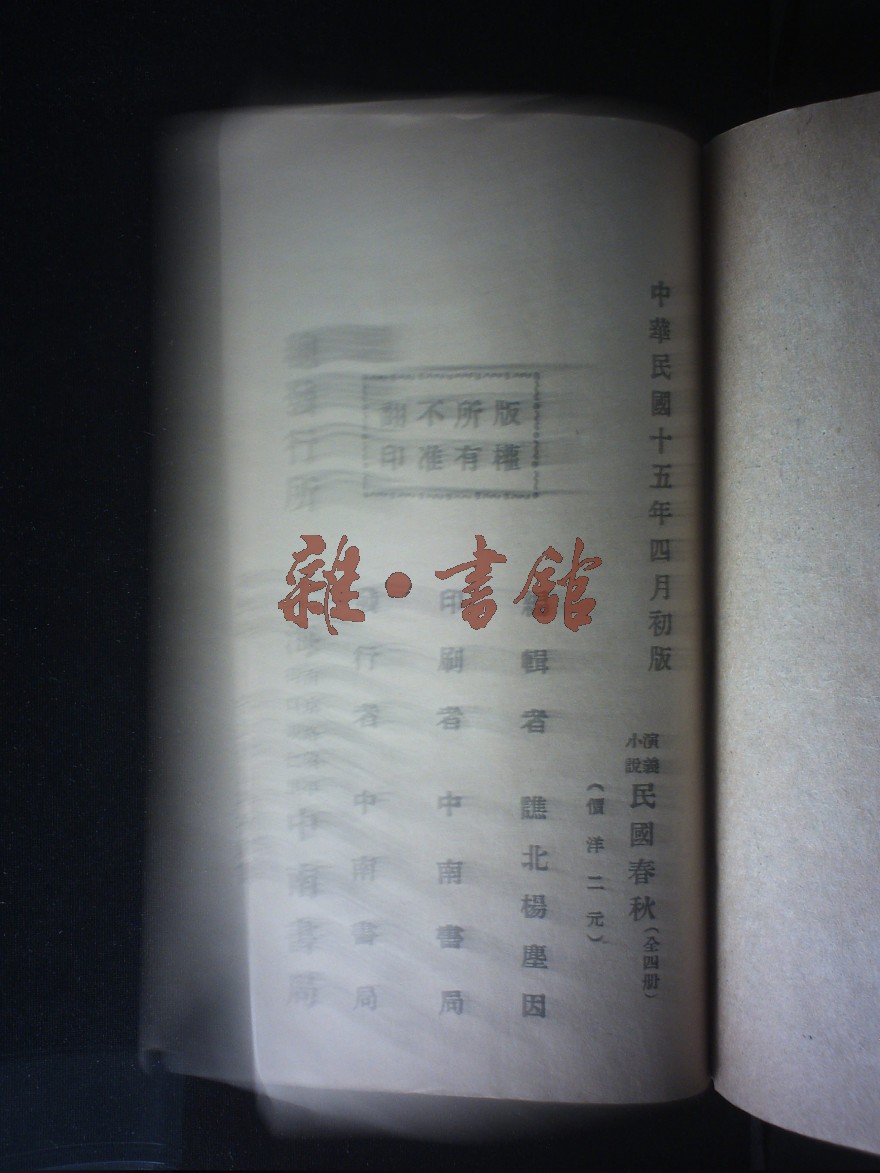 中華民國十五年四月初版
演義小說 民國春秋(全四册)
(價洋二元)
輯者 譙北楊塵因
印刷者 中南書局
行者 中南書局
發行所 中南書局
版權
所有
不准
翻印
雜·書館